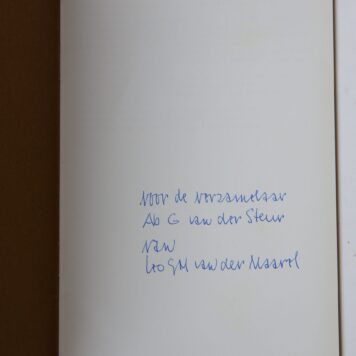 voor de verzamelaar
Ab G van der Steur
van
Leo GM van der Maarel